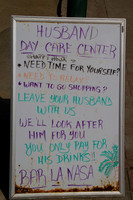 HUSBAND
DAY CARE CENTER
NEED TIME FOR YOURSELF?
NEED TO RELAX?
WANT TO GO SHOPPING?
LEAVE YOUR HUSBAND
WITH US
WE'LL LOOK AFTER
HIM FOR YOU
YOU ONLY PAY FOR
HIS DRINKS!!
BAR LA NASA